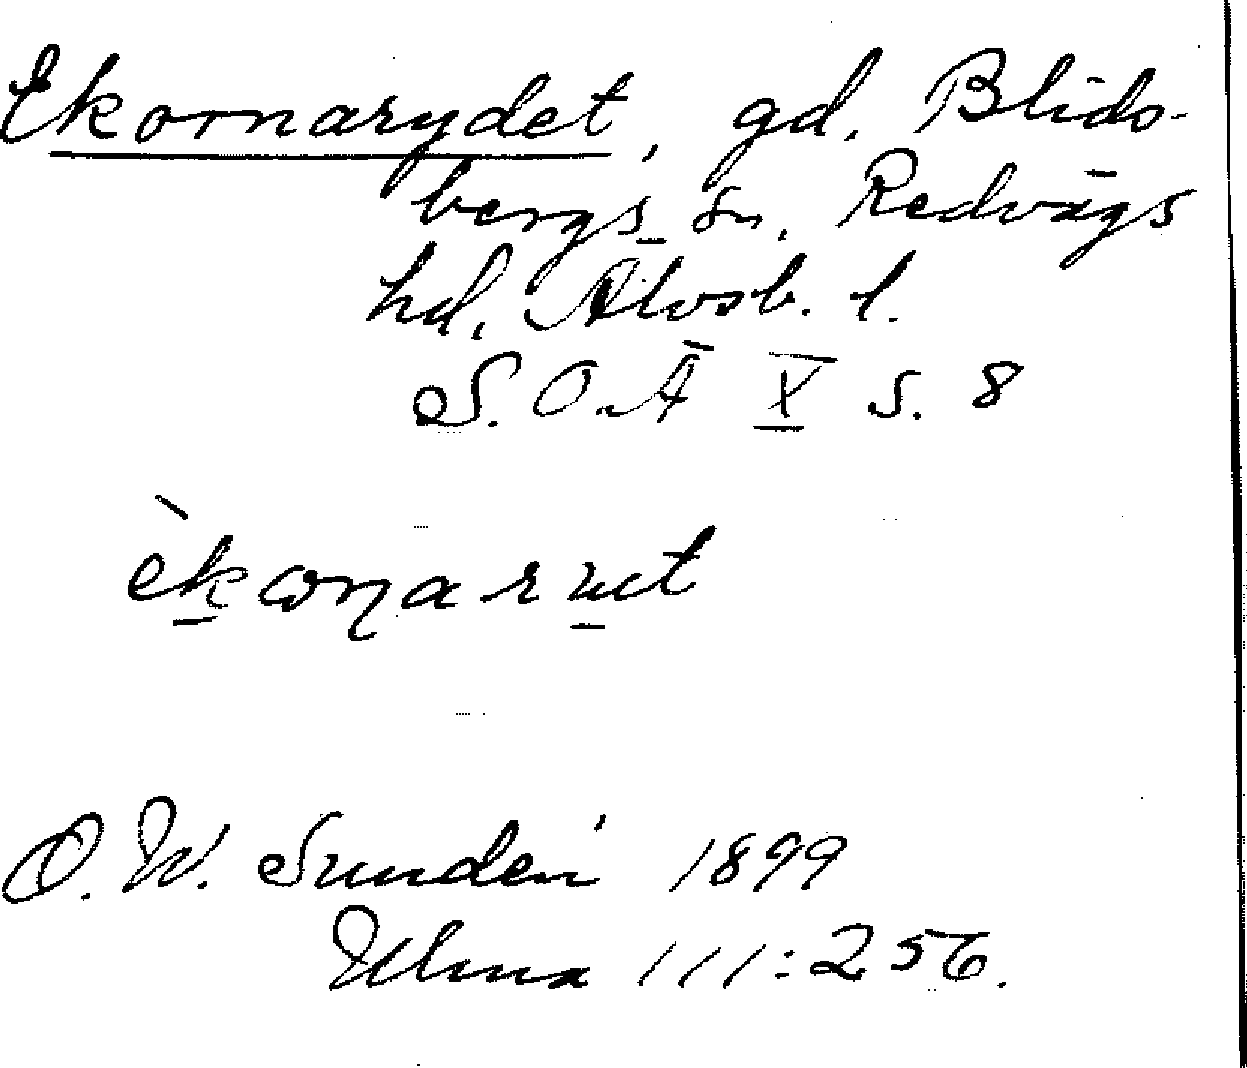 Ekornarydet, gd. Blids-
bergs sn, Redvägs
hd, Älvsb. l.
S.O.Ä X s. 8
èkωɳarut
O. W. Sundén 1899
Ulma 111:256.